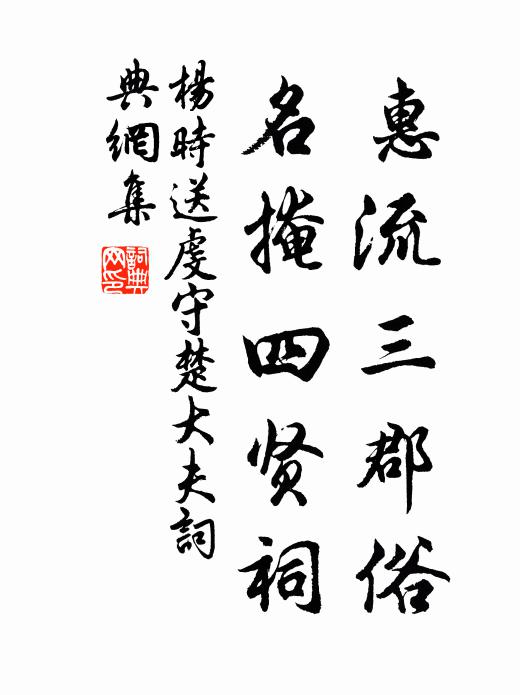 惠流三郡俗
名掩四贤祠
楊時送虔守楚大夫詞
典網集
詞典
网印